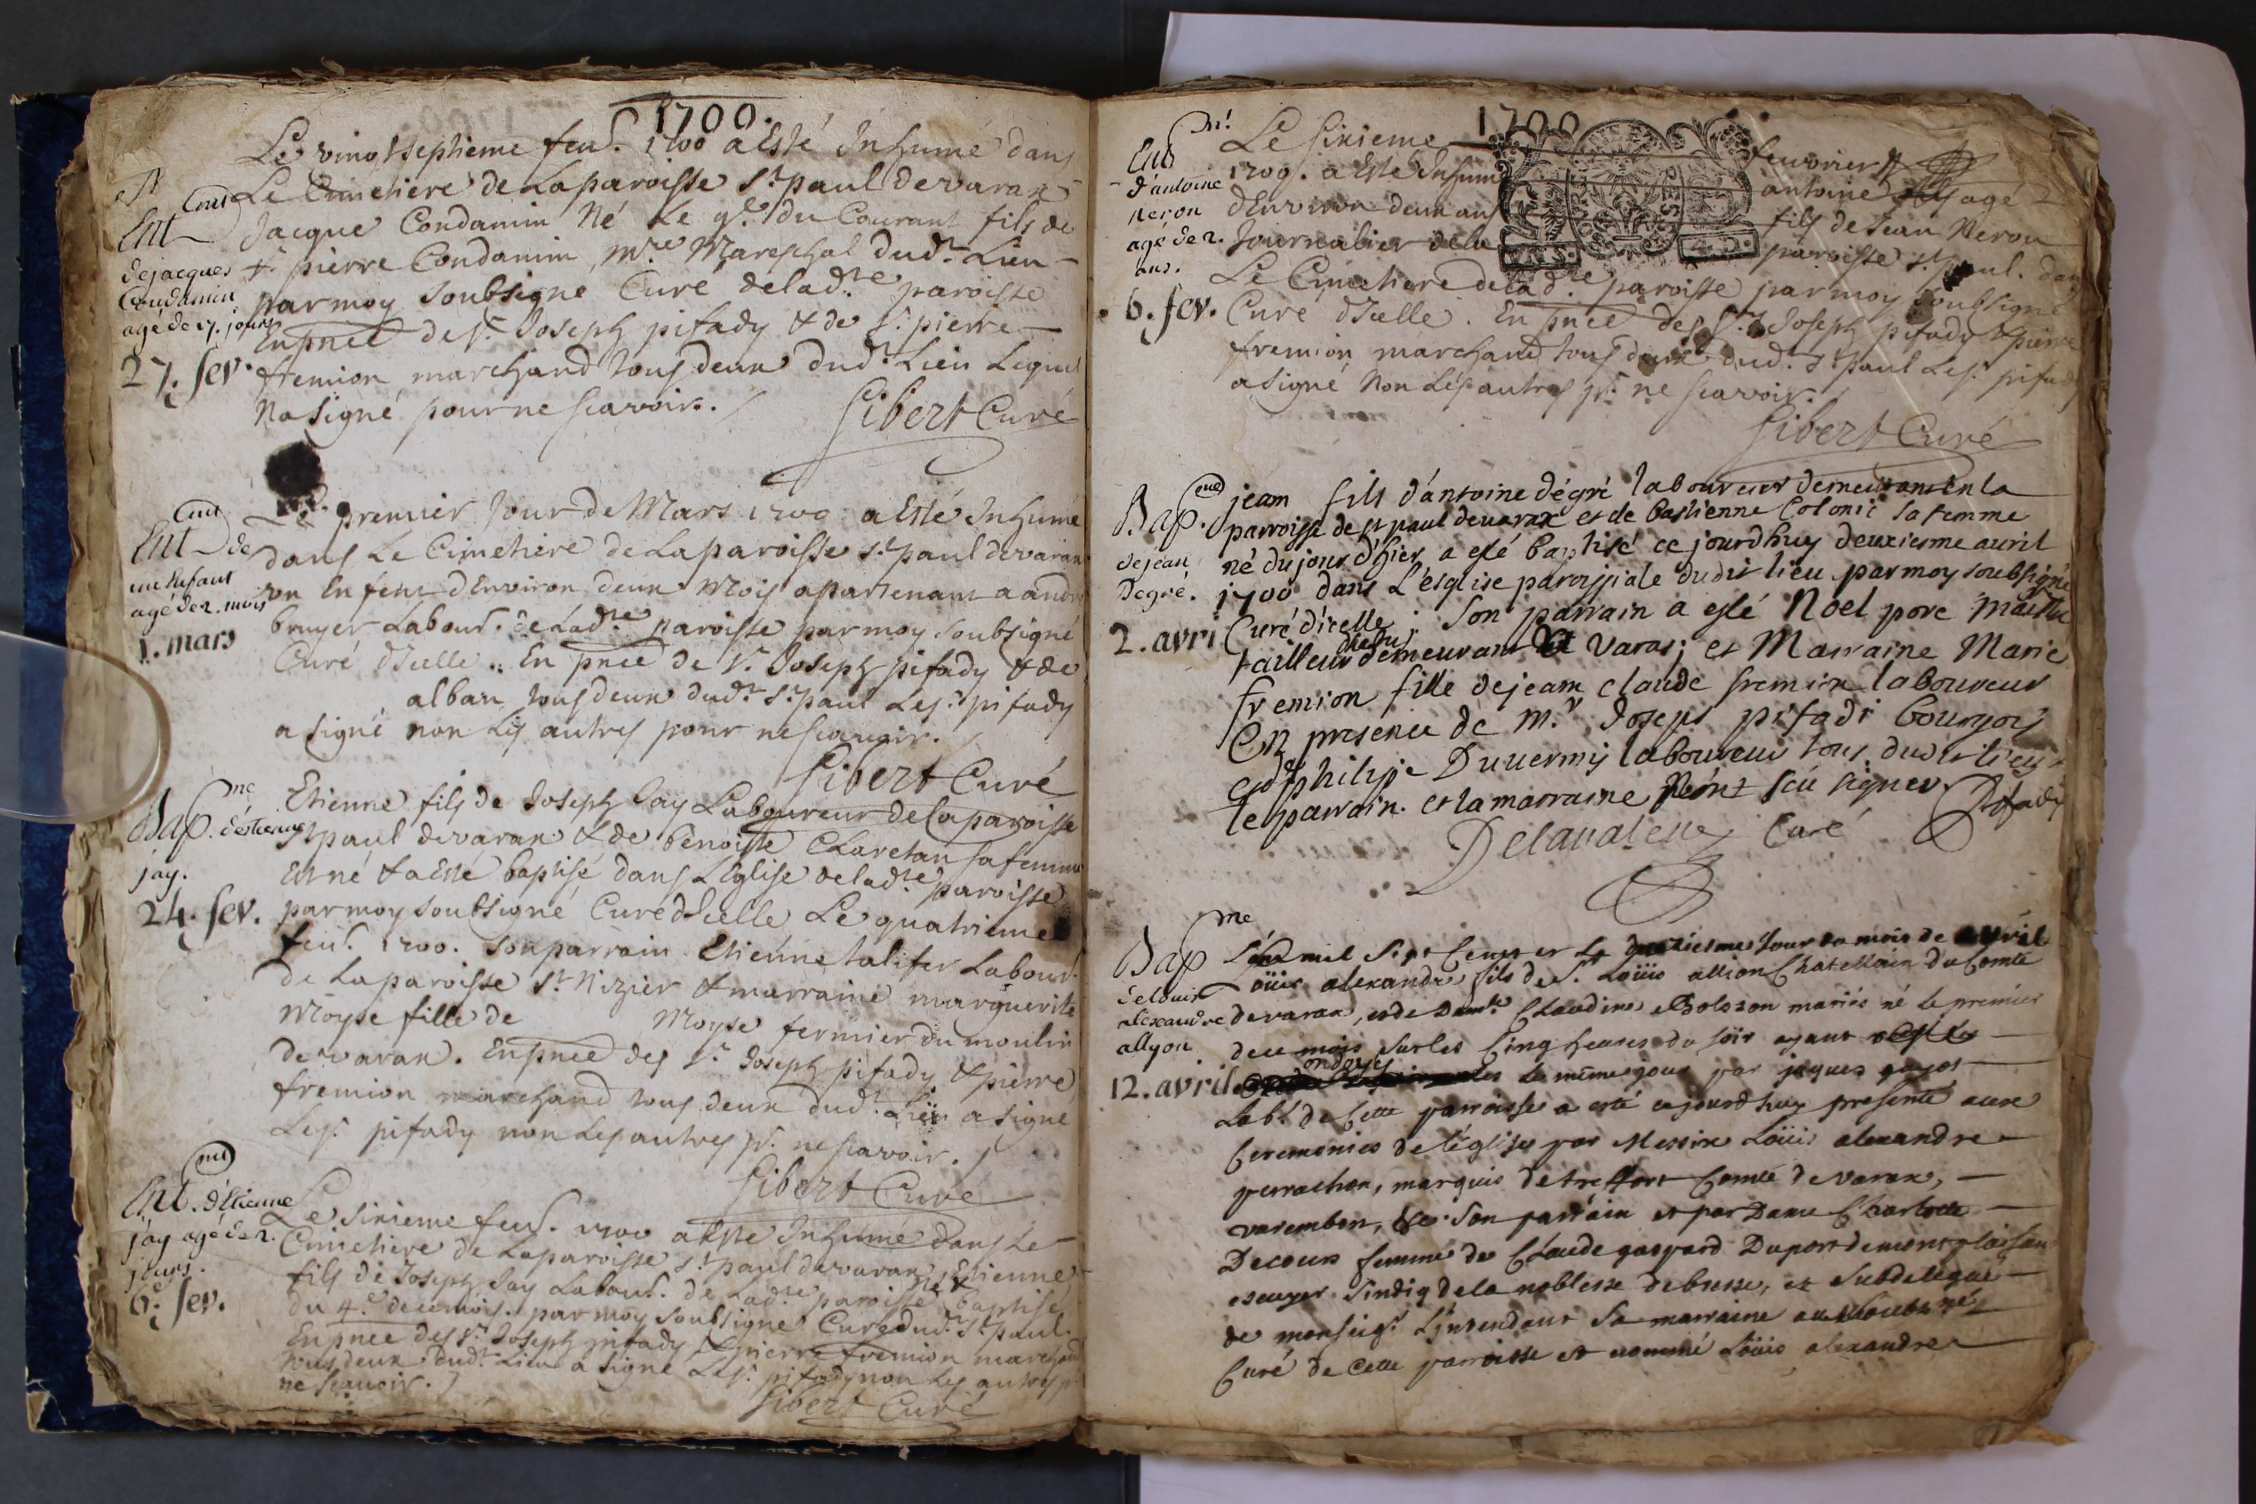 1700.
Le vingtseptieme feu.r 1700 a Esté Inhumé dans
Le Cimetiere de Laparoisse s.t paul devarax
Jacque Condamin Né Le 9.e du Courant fils de
s.r pierre Condamin, m.re Mareschal dud.t Lieu
par moy soubsigné Curé delad.te paroisse
En pnce de s.r Joseph pifady & de s.r pierre
fremion marchand tous deux dud.t Lieu Lequel
Na signé pour ne scavoir.
Sibert Curé
Ent
de jacques
Condamin
agé de 17. jours
27. fev.
Le premier Jour de Mars 1700 a Esté Inhumé
dans Le Cimetiere de Laparoisse s.t paul devarax
un Enfent dEnviron deux Mois apartenant a andré
bruyer Labour.r de Lad.te paroisse par moy soubsigné
Curé dIcelle. En pnce de s.r Joseph pifady & de
alban tous deux dud.t s.t paul Le s.r pifady
a signé non Les autres pour ne scavoir.
Sibert Curé
Ent de
un Enfant
agé de 2. mois
1. mars
Etienne fils de Joseph Jay Laboureur de Laparoisse
s.t paul devarax & de benoiste Claretan sa femme
Est né & a Esté baptisé dans LEglise delad.te paroisse
par moy soubsigné Curé dIcelle Le quatrieme
feu.r 1700. son parrain Etienne talifer Labour.r
de Laparoisse s.t Nizier & marraine marguerite
Moyse fille de Moyse fermier du moulin
de varax. En pnce des s.r Joseph pifady & pierre
fremion marchand tous deux dud.t Lieu a signé
Le s.r pifady non Les autres p.r ne scavoir.
Sibert Curé
Bap.me d'estienne
jay.
24. fev.
Le sixieme feu.r 1700 a Esté Inhumé dans Le
Cimetiere de Laparoisse s.t paul devarax Etienne
fils de Joseph Jay Labour.r de Lad.te paroisse né & baptisé
du 4.e de ce mois. par moy soubsigné Curé dud.t s.t paul.
En pnce des s.r Joseph pifady & pierre fremion marchand
tous deux dud.t Lieu a signé Le s.r pifady non Les autres p.r
ne scavoir.
Sibert Curé
Ent. d'Etienne
jay agé de 2.
jours.
6. fev.
1700
Le sixieme feuvrier
1700. a Esté Inhumé antoine agé
dEnviron deux ans fils de Jean Neron
Journalier de la paroisse s.t paul. dans
Le Cimetiere de lad.te paroisse par moy soubsigné
Curé dIcelle. En pnce des s.r Joseph pifady & pierre
fremion marchand tous deux dud.t s.t paul Le s.r pifady
a signé Non Les autres p.r ne scavoir.
Sibert Curé
Ent
d'antoine
neron
agé de 2.
ans.
6. fev.
jean fils d'antoine dégré laboureur demeurant En la
parroisse de st paul devarax et de bastienne Colonic sa femme
né du jour d'hier a esté baptisé ce jourdhuy deuxiesme auril
1700 dans L'esglise paroissiale dudit lieu par moy soubsigné
Curé d'icelle. Son parrain a esté Noel pore Maistre
tailleur demeurant a Varas; et Marraine Marie
fremion fille de jean claude fremion laboureur
En presence de M.r Joseph pifadi bourgois
et de philipe Duuernis laboureur tous dudit lieu
le parrain. et la marraine N'ont sceu signer Pifadi
Curé
Bap.
de jean
Degré.
2. avri
L'an mil Sept Cents et Le Jour du mois de avril
Loüis alexandre fils de S.r Loüis allion Chatellain du Comté
devarax, et de Dam.le Claudine Bolozon mariés né Le premier
de ce mois sur les Cinq heures du soir ayant
ondoyé Le même jour par jaques
Lab.r de Cette parroisse a esté cejourdhuy presenté aux
Ceremonies de l'église par Messire Loüis alexandre
perrachon, marquis de treffort Comte de varax,
varembon, &c. Son parrain et par Dame Charlotte
Decoux femme de Claude gaspard Duport demontplaisant
escuyer Sindiq dela noblesse debresse, et Subdelegué
de monseig.r L'Intendant Sa marraine
Curé de Cette parroisse et nommé Loüis alexandre
Bap.me
de Louis
alexandre
allyon
12. avril